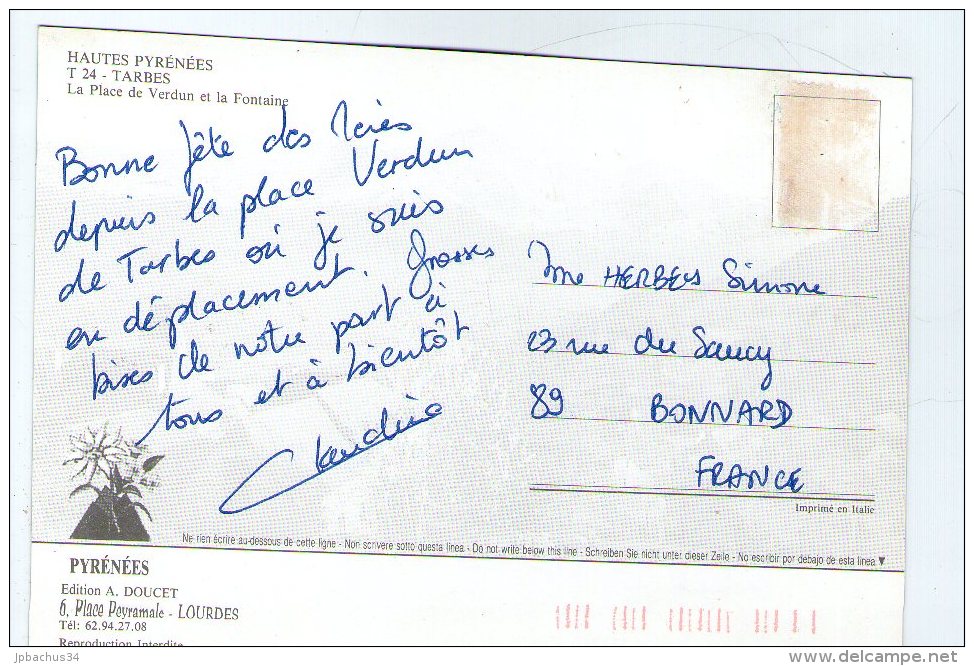 HAUTES PYRÉNÉES
T 24 - TARBES
La Place de Verdun et la Fontaine
Bonne fête des Mères
depuis la place Verdun
de Tarbes où je suis
en déplacement. Grosses
bises de notre part à
tous et à bientôt
Claudine
Mme HERBELS Simone
23 rue du Saucy
89 BONNARD
FRANCE
Imprimé en Italie
Ne rien écrire au-dessous de cette ligne - Non scrivere sotto questa linea - Do not write below this line - Schreiben Sie nicht unter dieser Zeile - No escribir por debajo de esta linea ▼
PYRÉNÉES
Edition A. DOUCET
6, Place Peyramale - LOURDES
Tél: 62.94.27.08
Reproduction Interdite
jpbachus34
www.delcampe.net